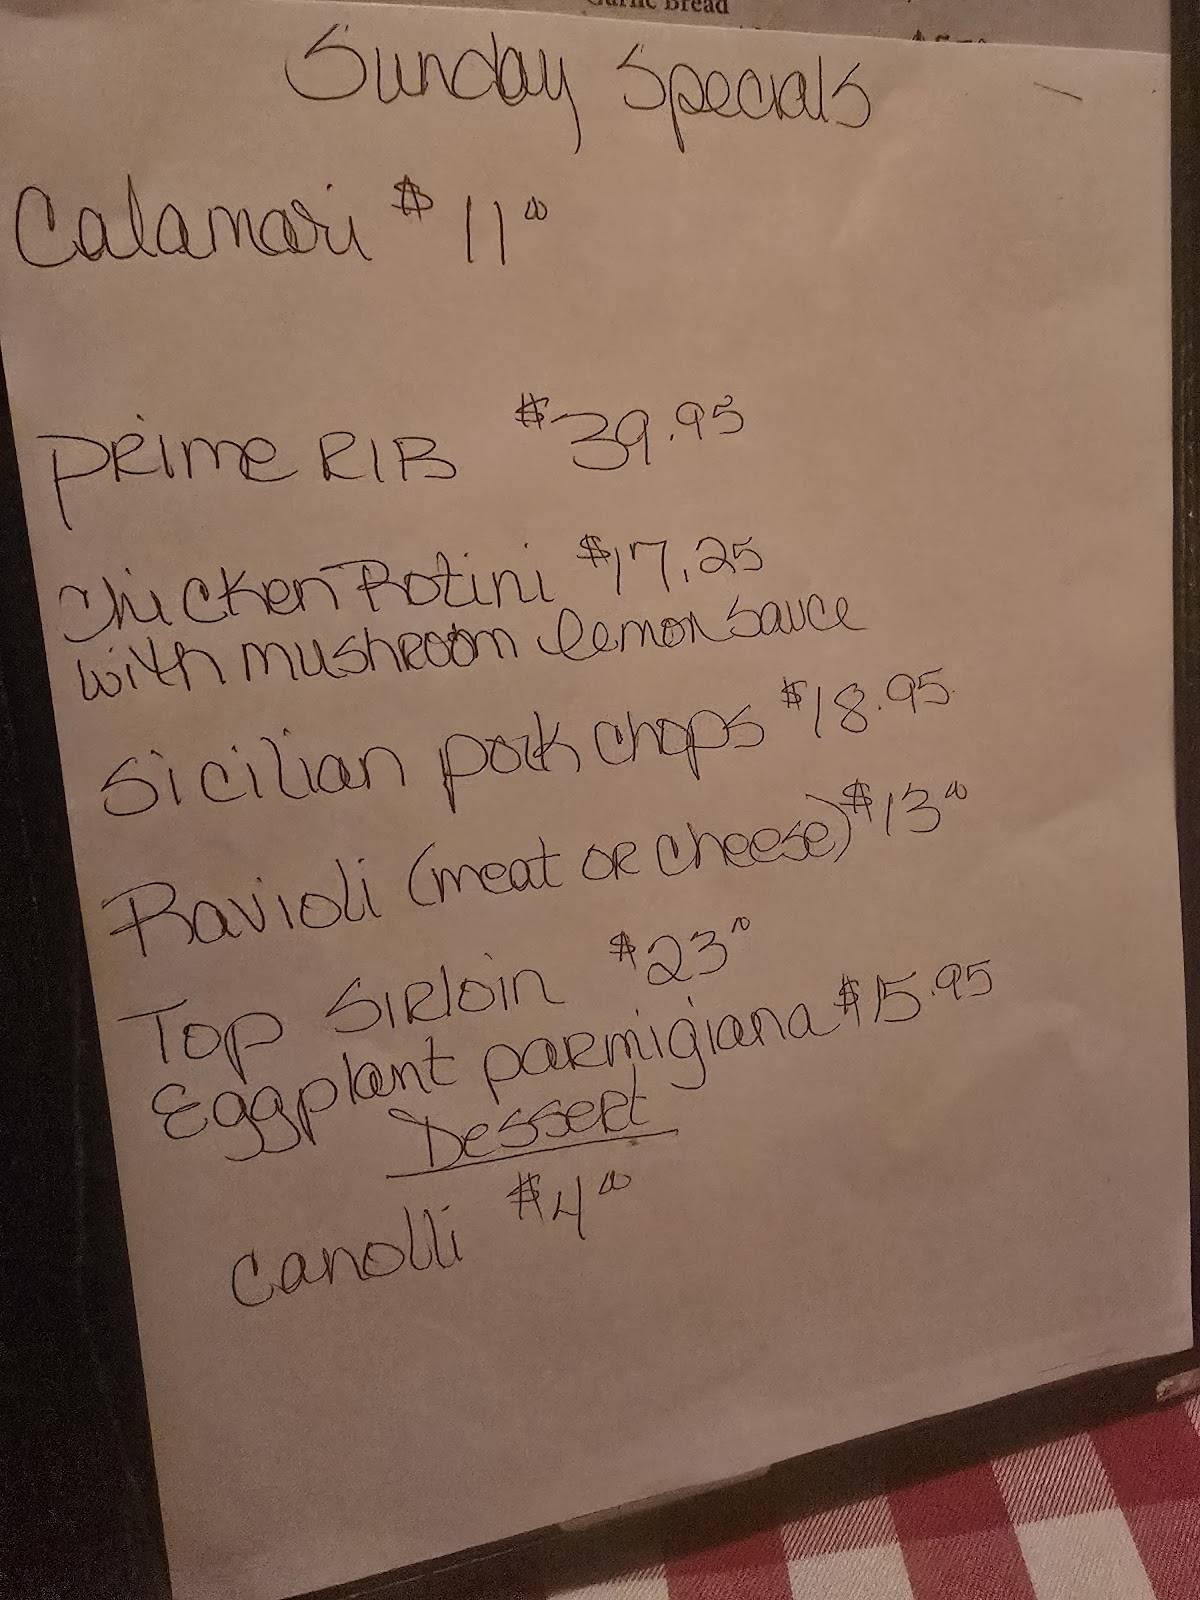 Garlic Bread
Sunday Specials
Calamari $11.00
Prime RIB $39.95
Chicken Rotini $17.25
with mushroom lemon sauce
Sicilian pork chops $18.95
Ravioli (meat or cheese) $13.00
Top Sirloin $23.00
Eggplant parmigiana $15.95
Dessert
Canolli $4.00